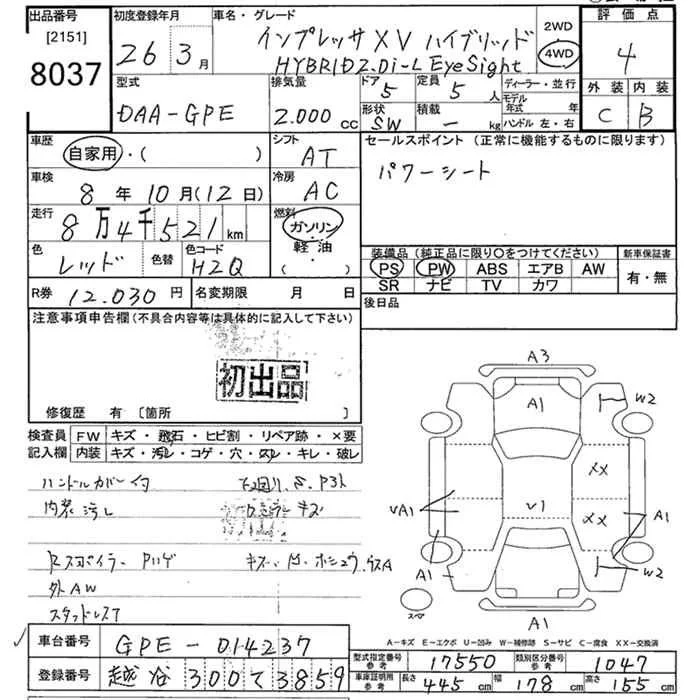 出品番号
[2151]
8037
初度登録年月
26年3月
車名・グレード
インプレッサXV ハイブリッド
HYBRID2.0i-L EyeSight
2WD
4WD
評価点
4
外装 内装
C B
型式
DAA-GPE
排気量
2.000cc
ドア 5
定員 5人
形状 SW
積載 - kg
ディーラー・並行
モデル年式 年
ハンドル 左・右
車歴
自家用・( )
シフト AT
車検
8年10月(12日)
冷房 AC
走行
8万4千521km
燃料
ガソリン・
軽油・
( )
色 レッド
色替
色コード HZQ
R券 12.030円
名変期限 月 日
セールスポイント(正常に機能するものに限ります)
パワーシート
装備品(純正品に限り〇をつけてください)
PS PW ABS エアB AW
SR ナビ TV カワ
新車保証書
有・無
後日品
注意事項申告欄(不具合内容等は具体的に記入して下さい)
初出品
修復歴 有〔箇所 〕
検査員記入欄
FW キズ・飛石・ヒビ割・リペア跡・×要
内装 キズ・汚レ・コゲ・穴・スレ・キレ・破レ
ハンドルカバー付
内装汚し
下廻り.S.P3ヶ
キズ
Rスポイラー Pハゲ
外AW
スタッドレス7
A3
A1
W2
XX
XX
VA1
V1
A1
A1
W2
A1
スペア
A-キズ E-エクボ U-凹み W-補修跡 S-サビ C-腐食 XX-交換済
車台番号 GPE-014237
登録番号 越谷 300て3859
型式指定番号参考 17550
類別区分番号参考 1047
車庫証明用参考 長さ 445cm 幅 178cm 高さ 155cm